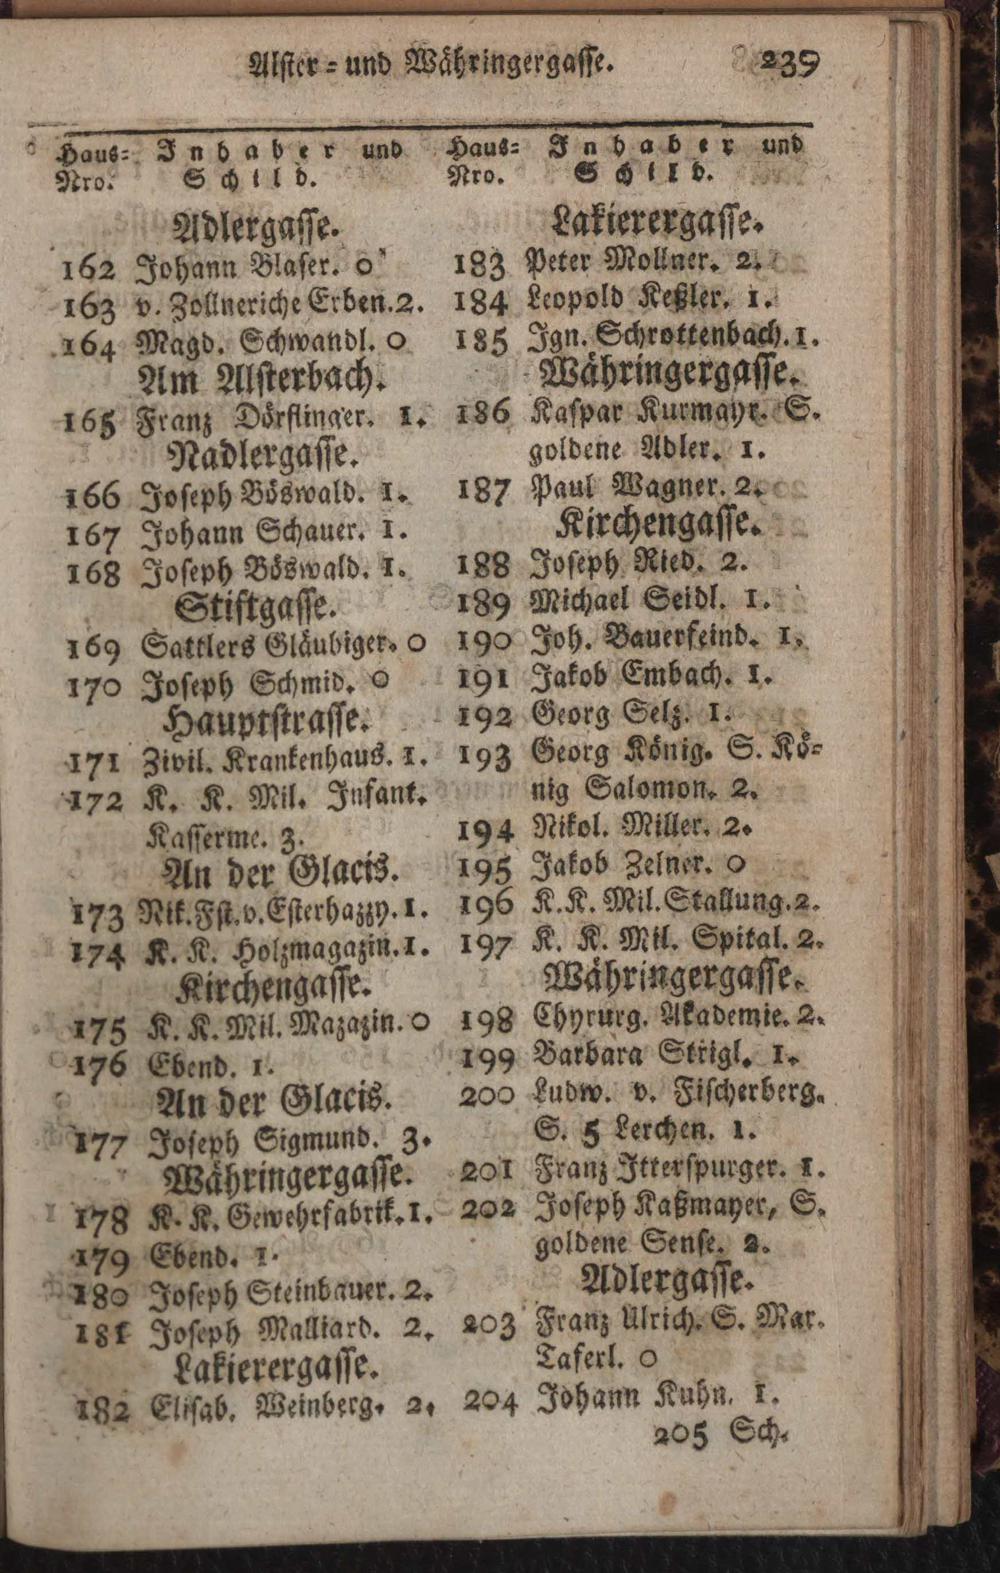 Alster- und Währingergasse. 239
Haus- Inhaber und
Nro. Schild.
Adlergasse.
162 Johann Blaser. 0
163 v. Zollneriche Erben. 2.
164 Magd. Schwandl. 0
Am Alsterbach.
165 Franz Dörflinger. 1.
Nadlergasse.
166 Joseph Böswald. 1.
167 Johann Schauer. 1.
168 Joseph Böswald. 1.
Stiftgasse.
169 Sattlers Gläubiger. 0
170 Joseph Schmid. 0
Hauptstrasse.
171 Zivil. Krankenhaus. 1.
172 K. K. Mil. Infant.
Kasserme. 3.
An der Glacis.
173 Nik. Fst. v. Esterhazzy. 1.
174 K. K. Holzmagazin. 1.
Kirchengasse.
175 K. K. Mil. Mazazin. 0
176 Ebend. 1.
An der Glacis.
177 Joseph Sigmund. 3.
Währingergasse.
178 K. K. Gewehrfabrik. 1.
179 Ebend. 1.
180 Joseph Steinbauer. 2.
181 Joseph Malliard. 2.
Lakierergasse.
182 Elisab. Weinberg. 2.
Haus- Inhaber und
Nro. Schild.
Lakierergasse.
183 Peter Mollner. 2.
184 Leopold Keßler. 1.
185 Ign. Schrottenbach. 1.
Währingergasse.
186 Kaspar Kurmayr. S.
goldene Adler. 1.
187 Paul Wagner. 2.
Kirchengasse.
188 Joseph Ried. 2.
189 Michael Seidl. 1.
190 Joh. Bauerfeind. 1.
191 Jakob Embach. 1.
192 Georg Selz. 1.
193 Georg König. S. Kö-
nig Salomon. 2.
194 Nikol. Miller. 2.
195 Jakob Zelner. 0
196 K. K. Mil. Stallung. 2.
197 K. K. Mil. Spital. 2.
Währingergasse.
198 Chyrurg. Akademie. 2.
199 Barbara Strigl. 1.
200 Ludw. v. Fischerberg.
S. 5 Lerchen. 1.
201 Franz Itterspurger. 1.
202 Joseph Kaßmayer, S.
goldene Sense. 2.
Adlergasse.
203 Franz Ulrich. S. Mar.
Taferl. 0
204 Johann Kuhn. 1.
205 Sch.